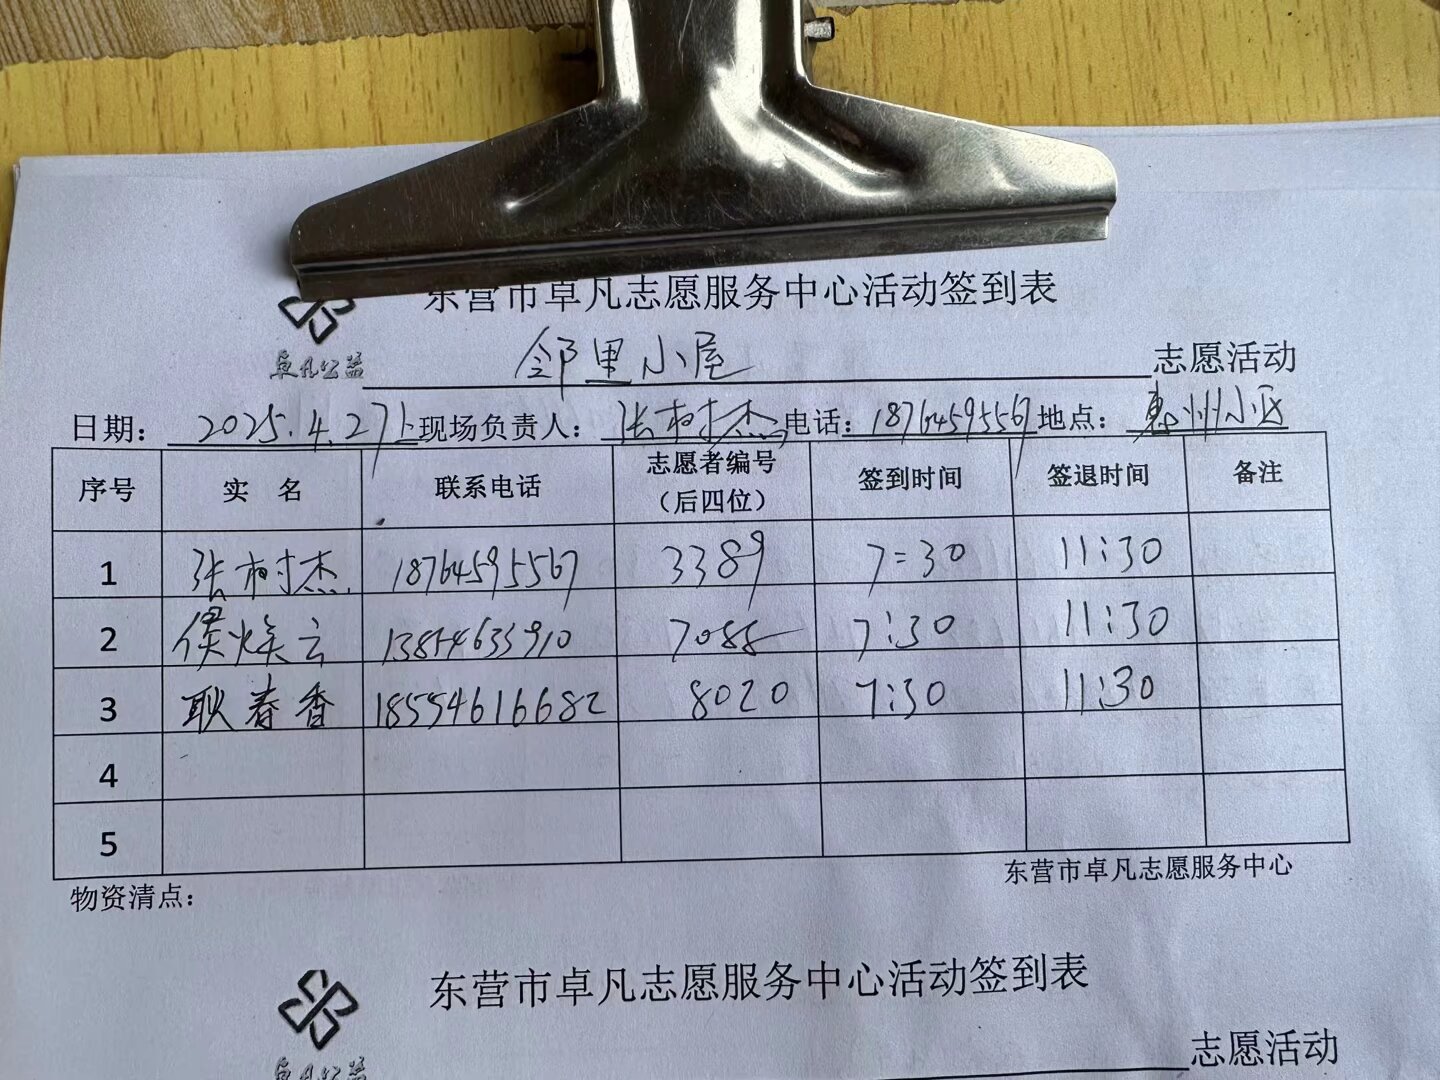 东营市卓凡志愿服务中心活动签到表
卓凡公益 邻里小屋 志愿活动
日期： 2025.4.27上 现场负责人： 张树杰 电话： 18764595567 地点： 惠州小区
序号 实 名 联系电话 志愿者编号（后四位） 签到时间 签退时间 备注
1 张树杰 18764595567 3389 7:30 11:30
2 侯焕云 13854633910 7088 7:30 11:30
3 耿春香 18554616682 8020 7:30 11:30
4
5
物资清点： 东营市卓凡志愿服务中心
东营市卓凡志愿服务中心活动签到表
卓凡公益 志愿活动